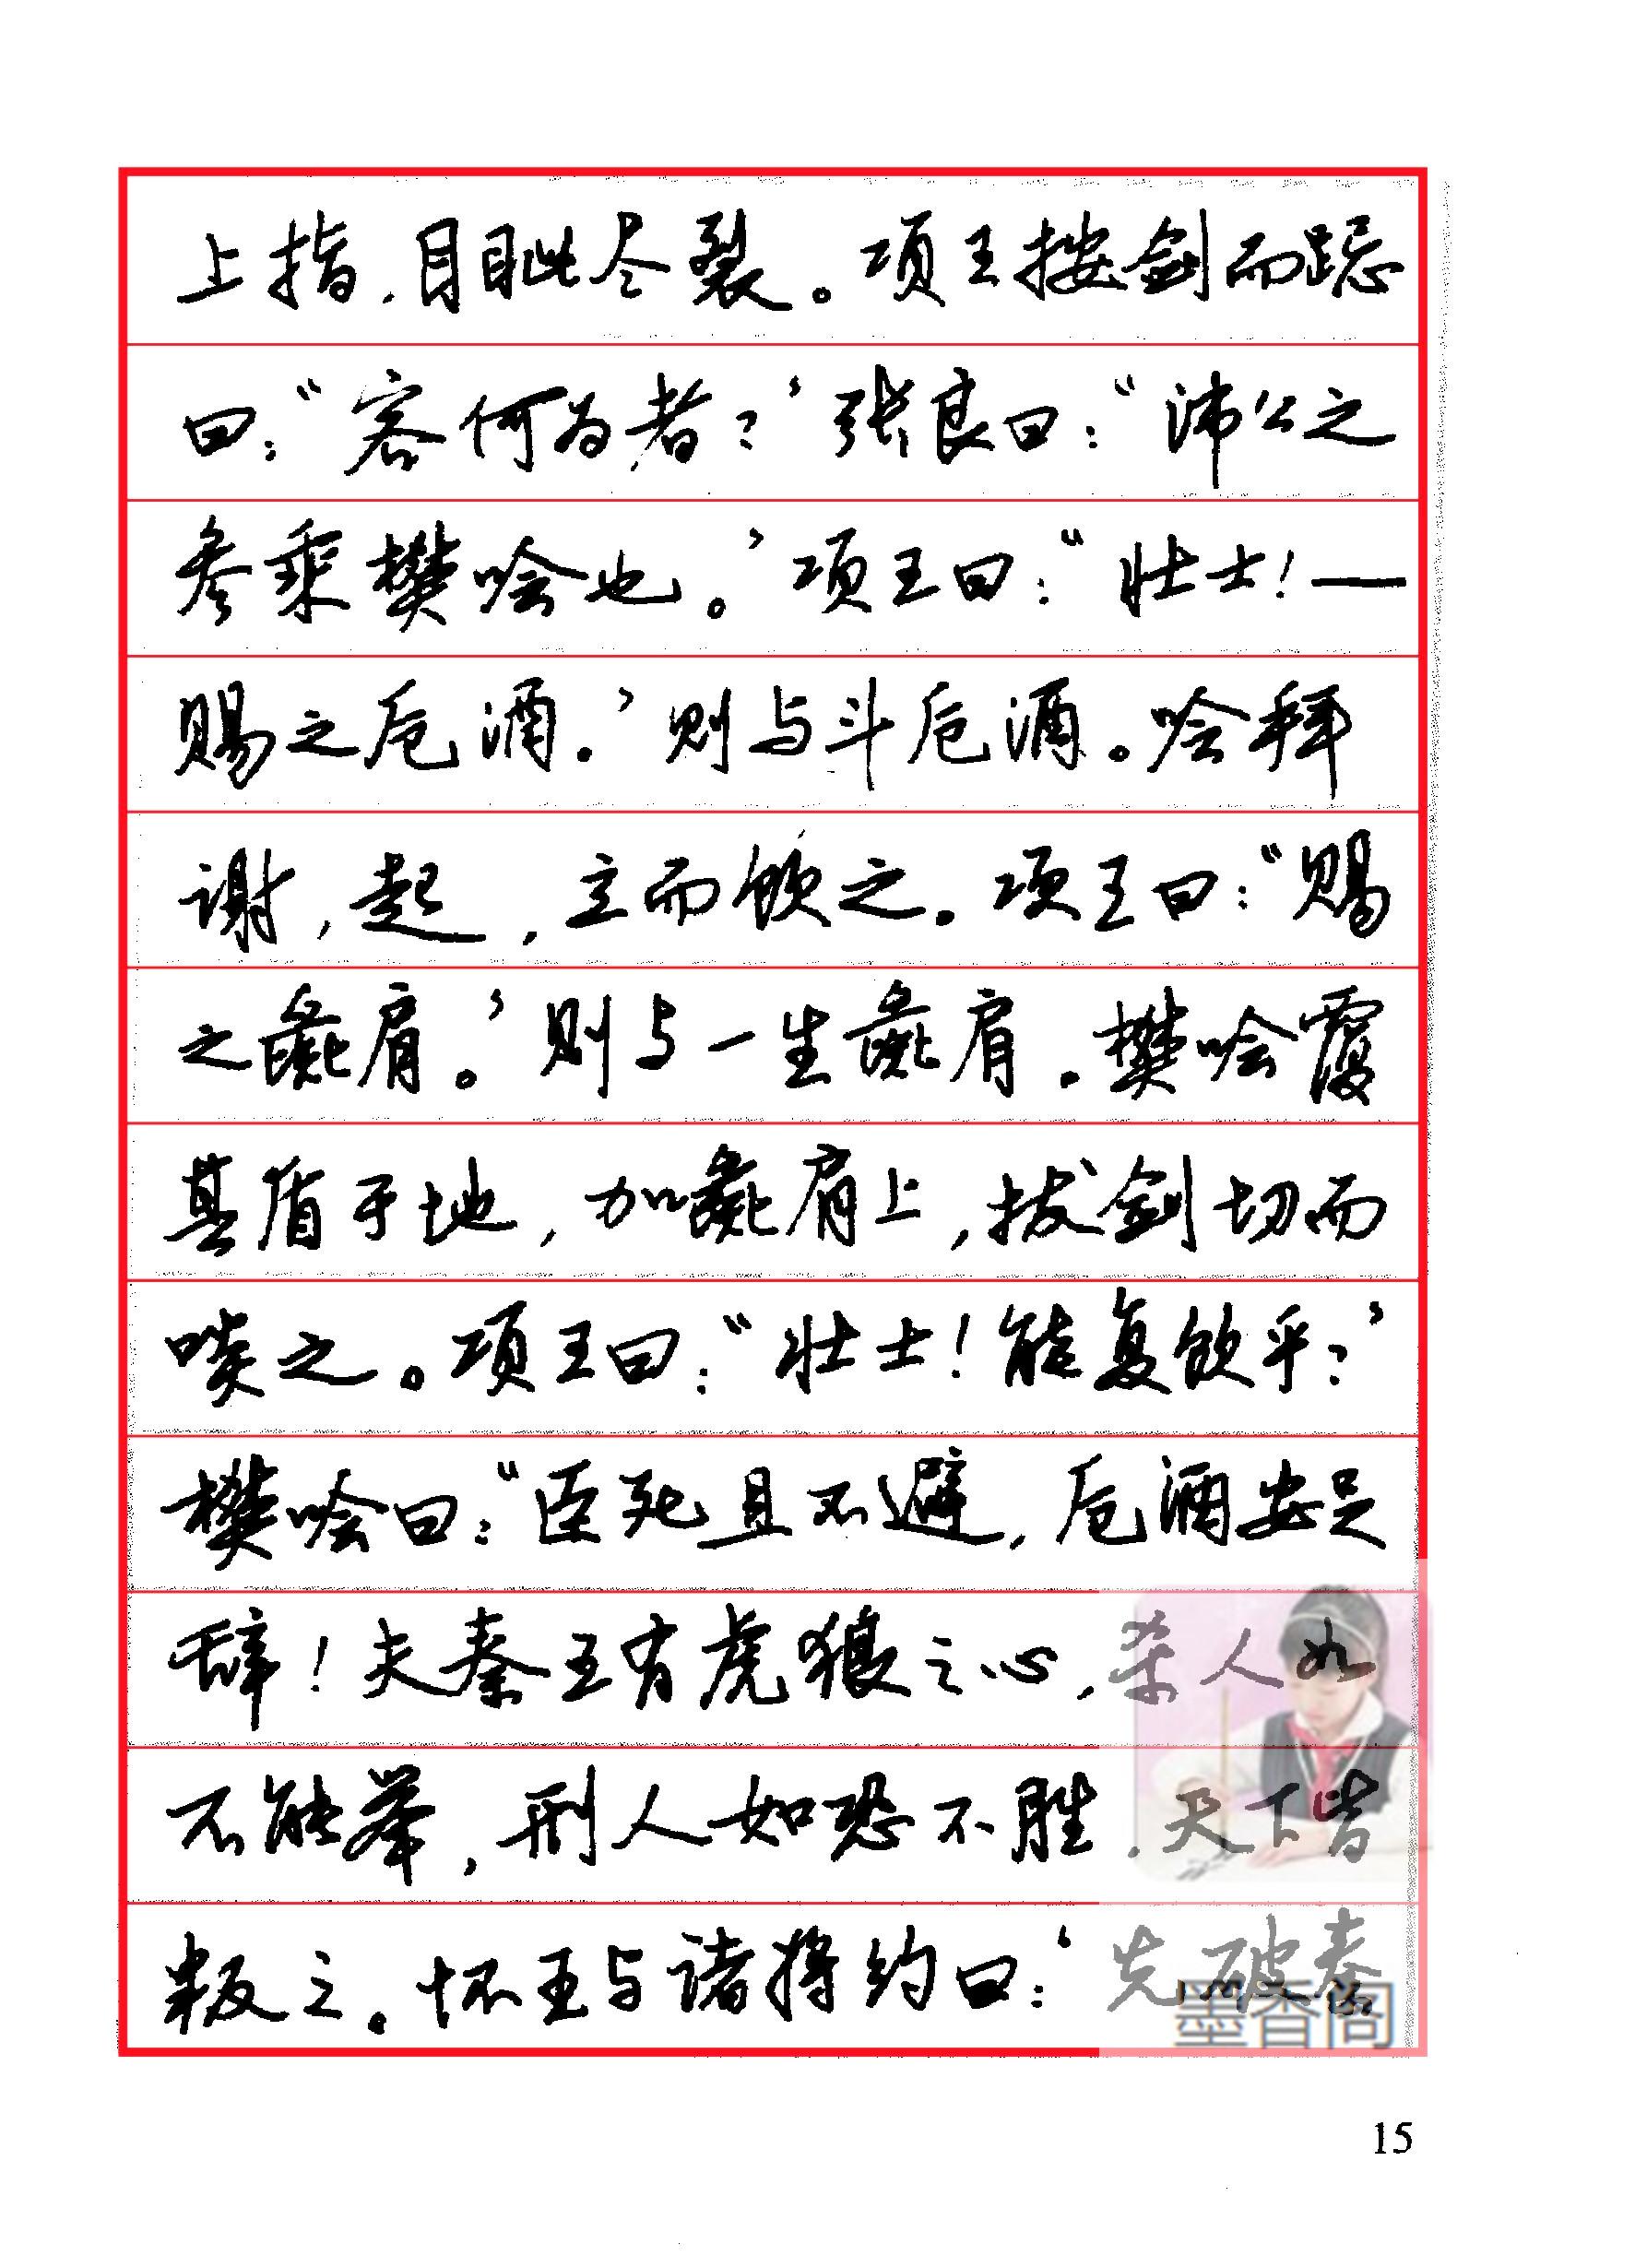 上指，目眦尽裂。项王按剑而跽
曰：“客何为者？”张良曰：“沛公之
参乘樊哙也。”项王曰：“壮士！—
赐之卮酒。”则与斗卮酒。哙拜
谢，起，立而饮之。项王曰：“赐
之彘肩。”则与一生彘肩。樊哙覆
其盾于地，加彘肩上，拔剑切而
啖之。项王曰：“壮士！能复饮乎？”
樊哙曰：“臣死且不避，卮酒安足
辞！夫秦王有虎狼之心，杀人如
不能举，刑人如恐不胜，天下皆
叛之。怀王与诸将约曰：‘先破秦
墨香阁
15